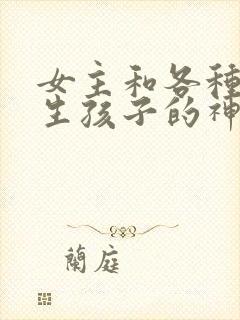 女主和各種
生孩子的神
蘭庭